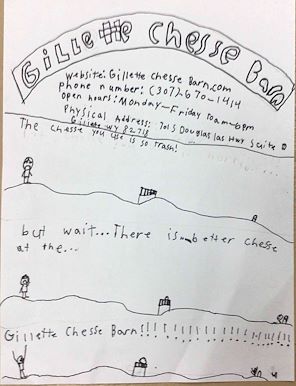 Gillette Chesse Barn
website: Gillette Chesse Barn.com
phone number: (307)-670-1414
open hours: Monday-Friday 10am-6pm
Physical Address: 701 S Douglas Hwy Suite
Gillette WY 82718
The chesse you use is so trash!
but wait... There is better chesse
at the...
Gillette Chesse Barn!!!!!!!!!!!!!!!!!